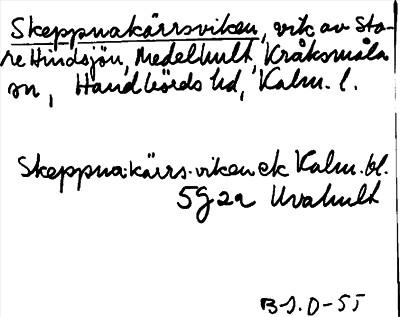 Skeppnakärrsviken, vik av Sto-
re Hindsjön, Medelhult, Kråksmåla
sn, Handbörds hd, Kalm. l.
Skeppna:kärrs.viken ek Kalm. bl.
5G2a Uvahult
B-S.O-55